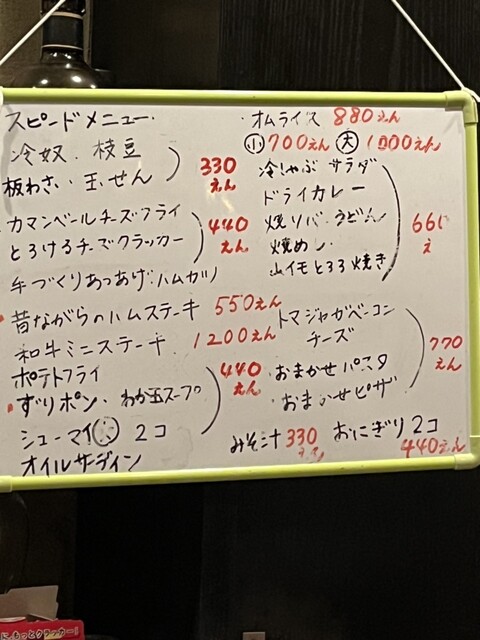 スピードメニュー
冷奴．枝豆
板わさ．玉せん
330えん
カマンベールチーズフライ
とろけるチーズクラッカー
440えん
手づくりあつあげ．ハムカツ
昔ながらのハムステーキ 550えん
和牛ミニステーキ． 1200えん
ポテトフライ
ずりポン．わかめスープ
シューマイ 2コ
オイルサーディン
440えん
・オムライス 880えん
小 700えん 大 1000えん
冷しゃぶ サラダ
ドライカレー
焼ソバ・うどん
焼めし
山イモとろろ焼き
660え
トマジャガベーコン
チーズ
・おまかせパスタ
・おまかせピザ
770えん
みそ汁 330えん
おにぎり2コ
440えん
に、もっとクラッカー!